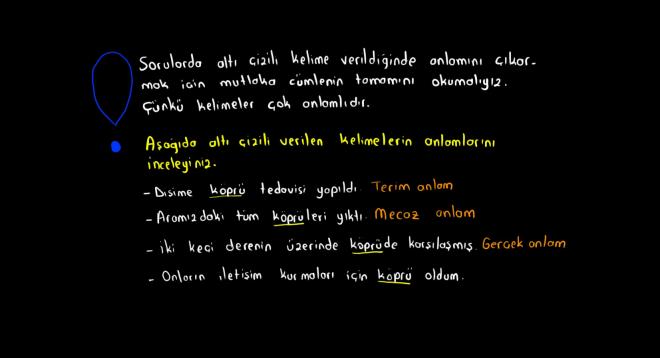 Sorularda altı çizili kelime verildiğinde anlamını çıkar-
mak için mutlaka cümlenin tamamını okumalıyız.
Çünkü kelimeler çok anlamlıdır.
Aşağıda altı çizili verilen kelimelerin anlamlarını
inceleyiniz.
- Dişime köprü tedavisi yapıldı. Terim anlam
- Aramızdaki tüm köprüleri yıktı. Mecaz anlam
- İki keçi derenin üzerinde köprüde karşılaşmış. Gerçek anlam
- Onların iletişim kurmaları için köprü oldum.